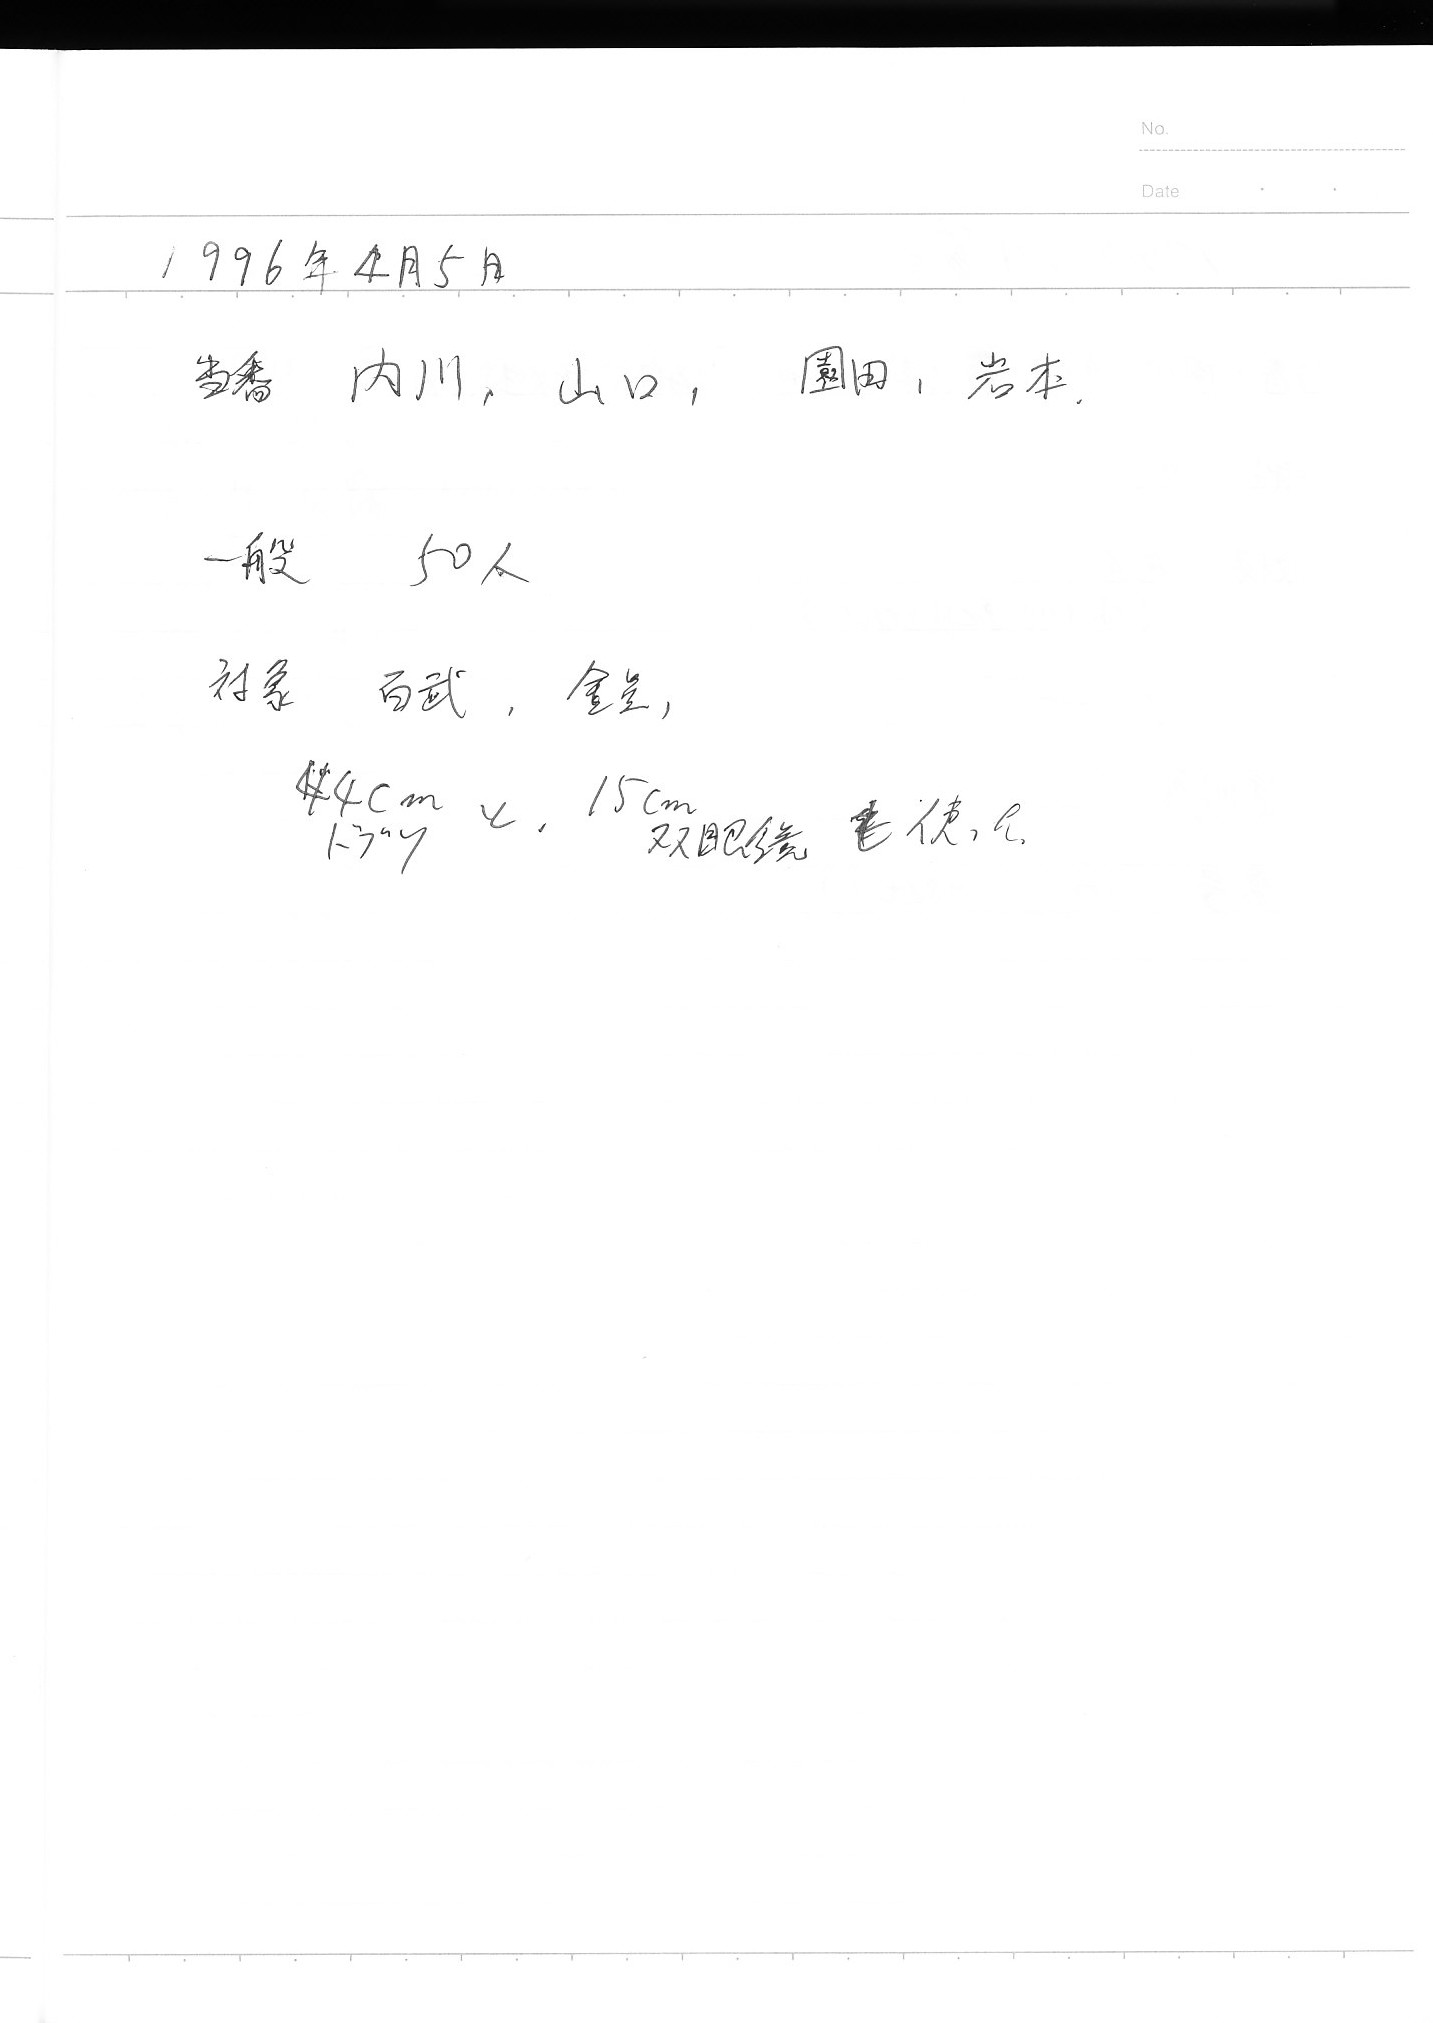 No.
Date
1996年4月5日
当番 内川, 山口, 園田, 岩本.
一般 50人
対象 百武, 金星,
44cm と, 15cm
ドブソ 双眼鏡 を使った